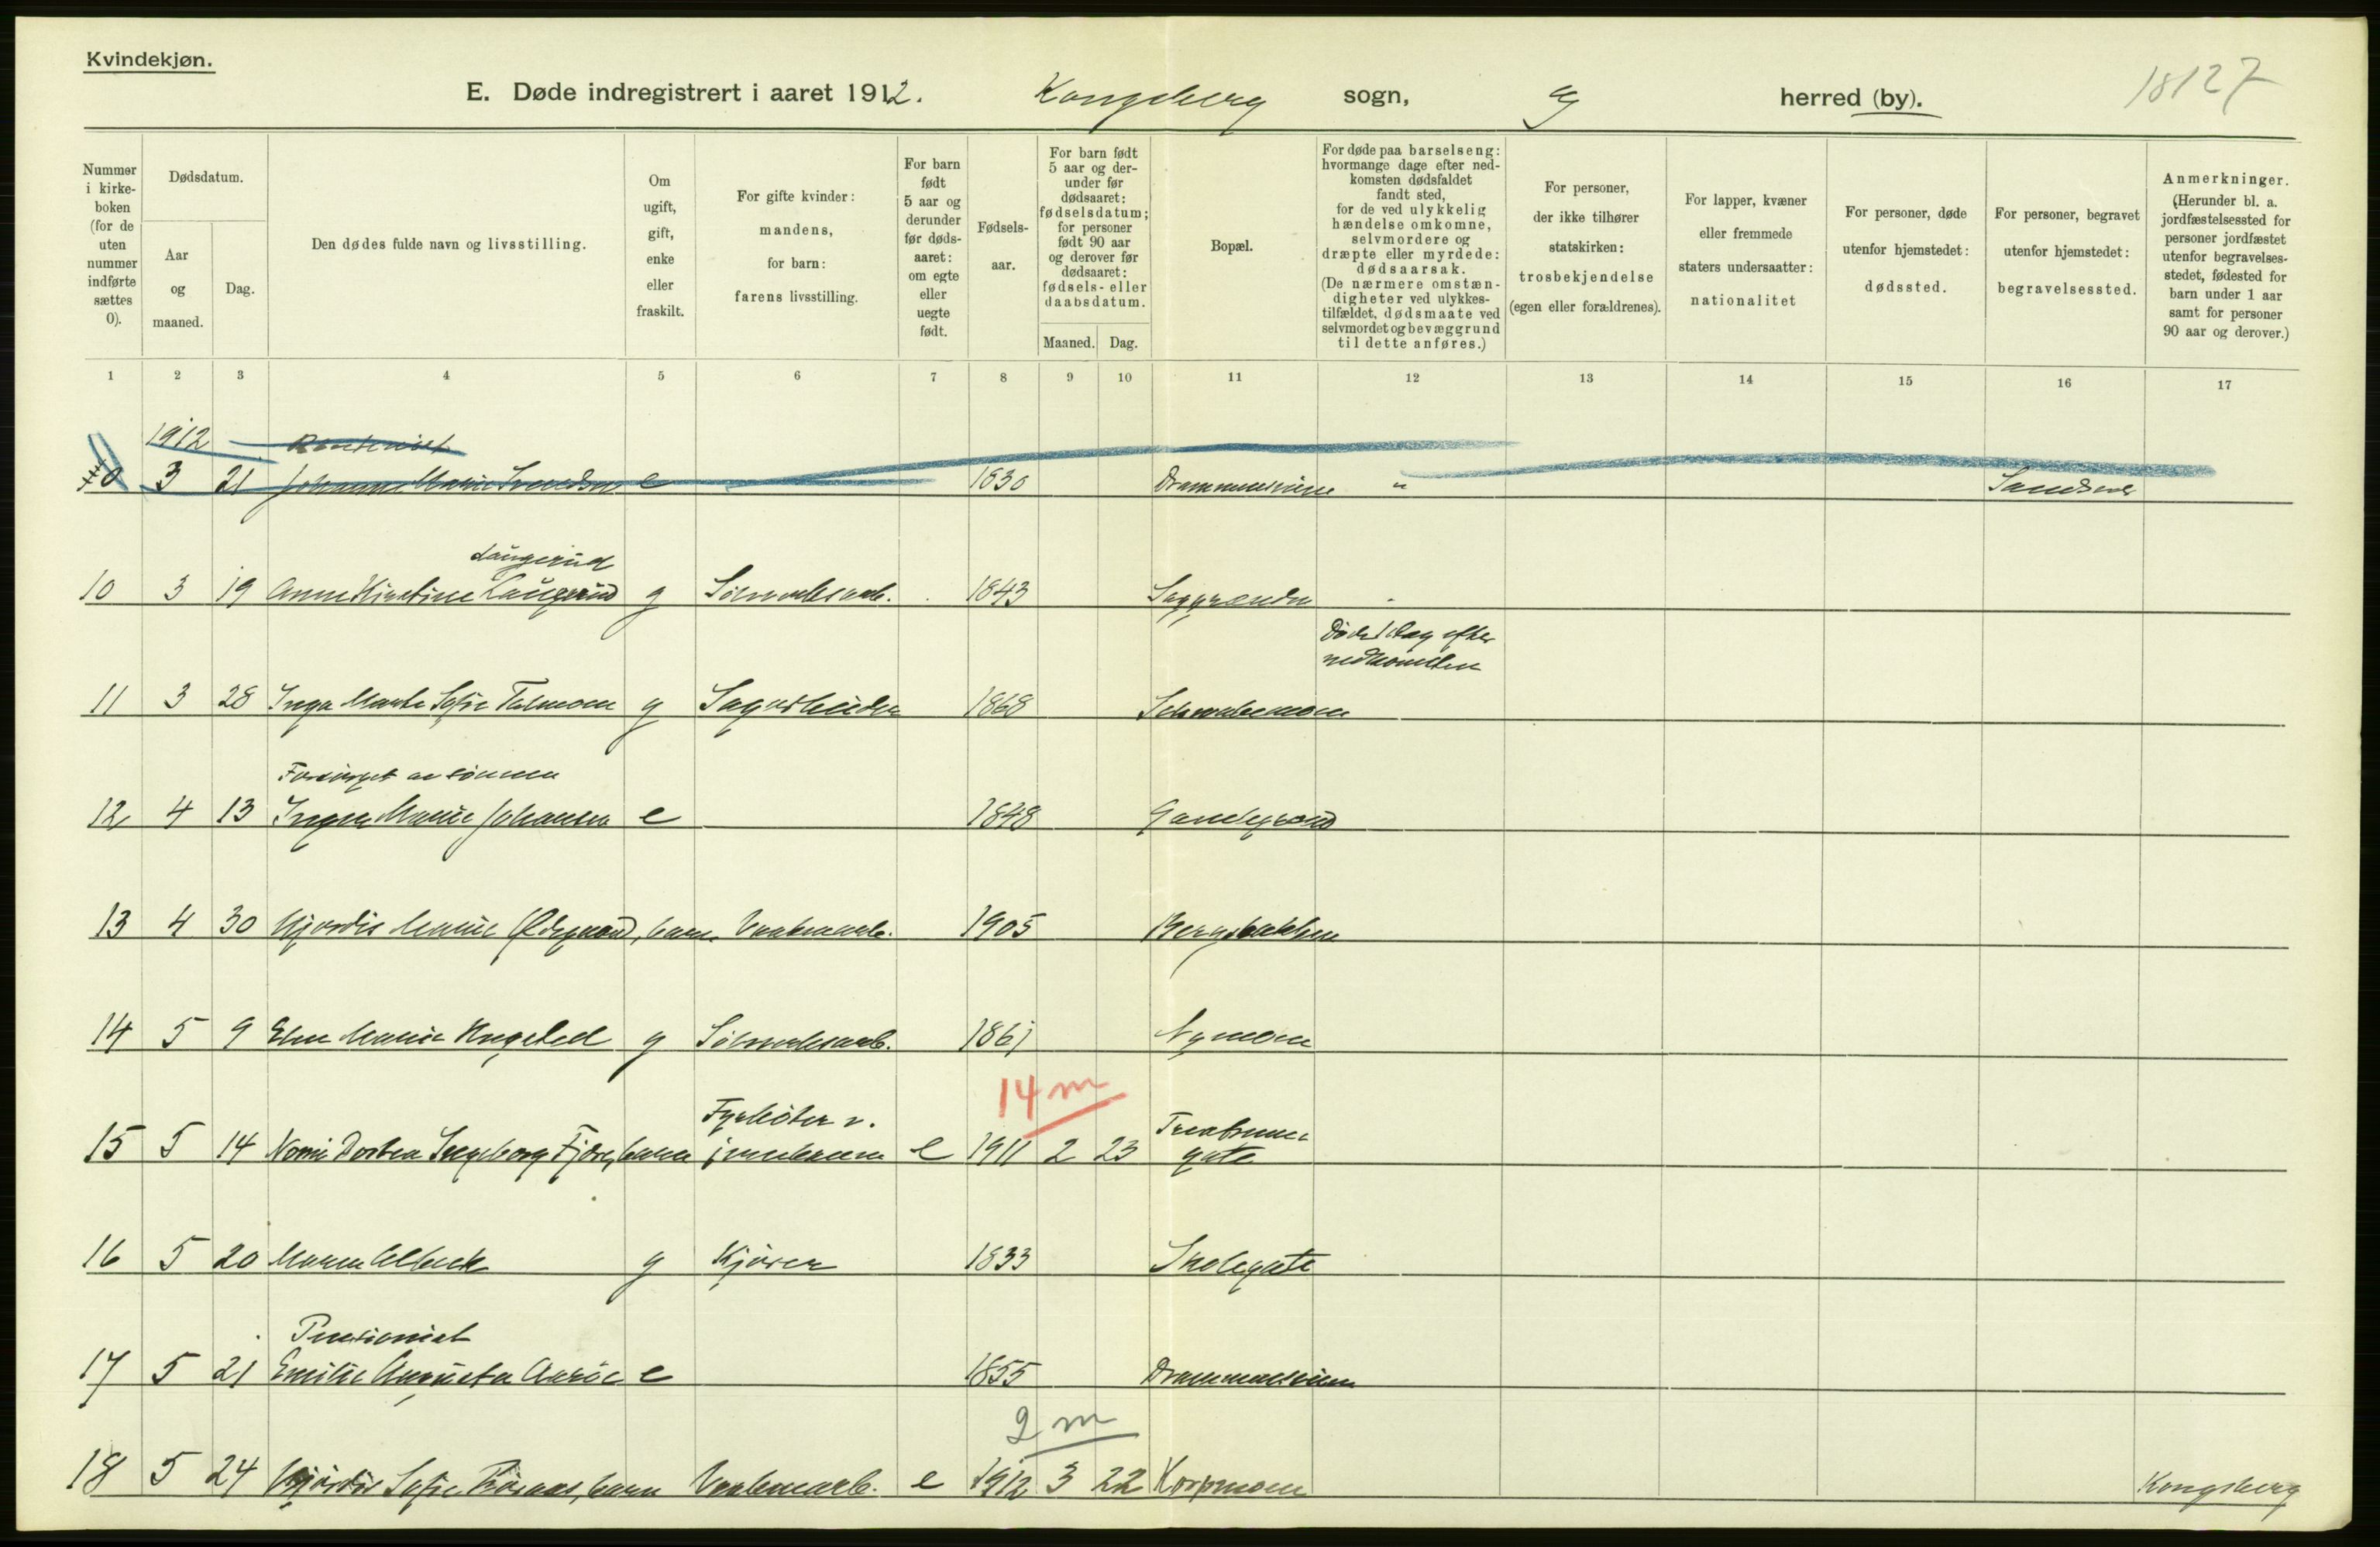 Kvindekjøn.
E. Døde indregistrert i aaret 1912. Kongsberg sogn, herred (by). 18127
Nummer i kirke-boken (for de uten nummer indførte sættes 0).
Dødsdatum.
Aar og maaned.
Dag.
Den dødes fulde navn og livsstilling.
Om ugift, gift, enke eller fraskilt.
For gifte kvinder: mandens, for barn: farens livsstilling.
For barn født 5 aar og derunder før døds-aaret: om egte eller uegte født.
Fødsels-aar.
For barn født 5 aar og der-under før dødsaaret: fødselsdatum; for personer født 90 aar og derover før dødsaaret: fødsels- eller daabsdatum.
Maaned. Dag.
Bopæl.
For døde paa barselseng: hvormange dage efter ned-komsten dødsfaldet fandt sted, for de ved ulykkelig hændelse omkomne, selvmordere og dræpte eller myrdede: dødsaarsak. (De nærmere omstæn-digheter ved ulykkes-tilfældet, dødsmaate ved selvmordet og bevæggrund til dette anføres.)
For personer, der ikke tilhører statskirken: trosbekjendelse (egen eller forældrenes).
For lapper, kvæner eller fremmede staters undersaatter: nationalitet
For personer, døde utenfor hjemstedet: dødssted.
For personer, begravet utenfor hjemstedet: begravelsessted.
Anmerkninger. (Herunder bl. a. jordfæstelsessted for personer jordfæstet utenfor begravelses-stedet, fødested for barn under 1 aar samt for personer 90 aar og derover.)
1 2 3 4 5 6 7 8 9 10 11 12 13 14 15 16 17
1912
0 3 21 Johanne Marie e 1830 Drammensveien " Sandsvær
Laugerud
10 3 19 Anne Kirstine Laugerud g Sølvverksarb. 1843 Saggrænden
Død 1 dag efter
nedkomsten
11 3 28 Inga Marte Sofie g 1868
Forsørget av sønnen
12 4 13 Marie Johansen e 1848
13 4 30 Hjørdis Marie Ødegaard, barn Vaabenarb. 1905 Bergsbakken
14 5 9 Marie g Sølvverksarb. 1861 Nymoen
14 m
Fyrbøter v.
15 5 14 Dortea Ingeborg barn jernbanen e 1911 2 23 gate
16 5 20 Maren g Kjører 1833 Skolegate
Pensionist
17 5 21 Emilie Augusta e 1855 Drammensveien
2 m
18 5 24 Hjørdis Sofie barn Vaabenarb. e 1912 3 22 Korpmoen Kongsberg